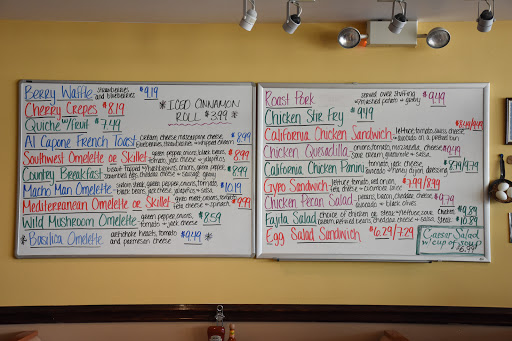 Berry Waffle strawberries and blueberries $9.19
Cherry Crepes $8.19
Quiche w/fruit $7.49
* ICED CINNAMON ROLL $3.99 *
Al Capone French Toast cream cheese, mascarpone cheese $8.99
blueberries, strawberries + whipped cream
Southwest Omelette or Skillet green pepper, onions, black beans $8.99
tomato, jack cheese + jalapeños
Country Breakfast $8.99
cheddar cheese + sausage gravy
Macho Man Omelette green pepper, onions, tomato $10.19
Mediterranean Omelette or Skillet tomato, onion, $9.99
feta cheese + spinach
Wild Mushroom Omelette green pepper, onions, $8.59
tomato + jack cheese
* Basilica Omelette artichoke hearts, tomato and parmesan cheese $9.49 *
Roast Pork served over stuffing $9.49
+ mashed potato + gravy
Chicken Stir Fry $9.49
California Chicken Sandwich lettuce, tomato, swiss cheese $8.49/9.49
avocado on a pretzel bun
Chicken Quesadilla onions, tomato, mozzarella cheese $9.49
sour cream, guacamole + salsa
California Chicken Panini tomato, jack cheese $8.49/9.49
avocado + honey dijon dressing
Gyro Sandwich lettuce, tomato, red onion, $7.99/8.99
feta cheese + cucumber sauce
Chicken Pecan Salad pecans, bacon, cheddar cheese, $9.79
avocado + black olives
Fajita Salad choice of chicken or steak + lettuce, sour Chicken $9.89
cream, refried beans, cheddar cheese + salsa Steak $10.89
Egg Salad Sandwich $6.29/7.29
Caesar Salad
w/ cup of soup
$6.99